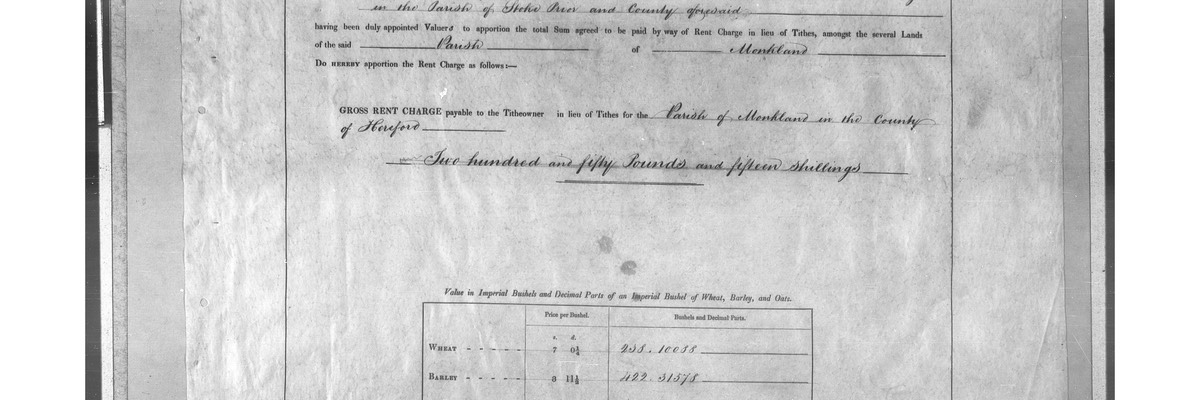 in the Parish of Stoke Prior and County aforesaid
having been duly appointed Valuers to apportion the total Sum agreed to be paid by way of Rent Charge in lieu of Tithes, amongst the several Lands
of the said Parish of Monkland
Do HEREBY apportion the Rent Charge as follows:—
GROSS RENT CHARGE payable to the Titheowner in lieu of Tithes for the Parish of Monkland in the County
of Hereford
Two hundred and fifty Pounds and fifteen shillings
Value in Imperial Bushels and Decimal Parts of an Imperial Bushel of Wheat, Barley, and Oats.
Price per Bushel. Bushels and Decimal Parts.
s. d.
WHEAT - - - - - 7 0¼ 238.10088
BARLEY - - - - - 3 11½ 422.31578